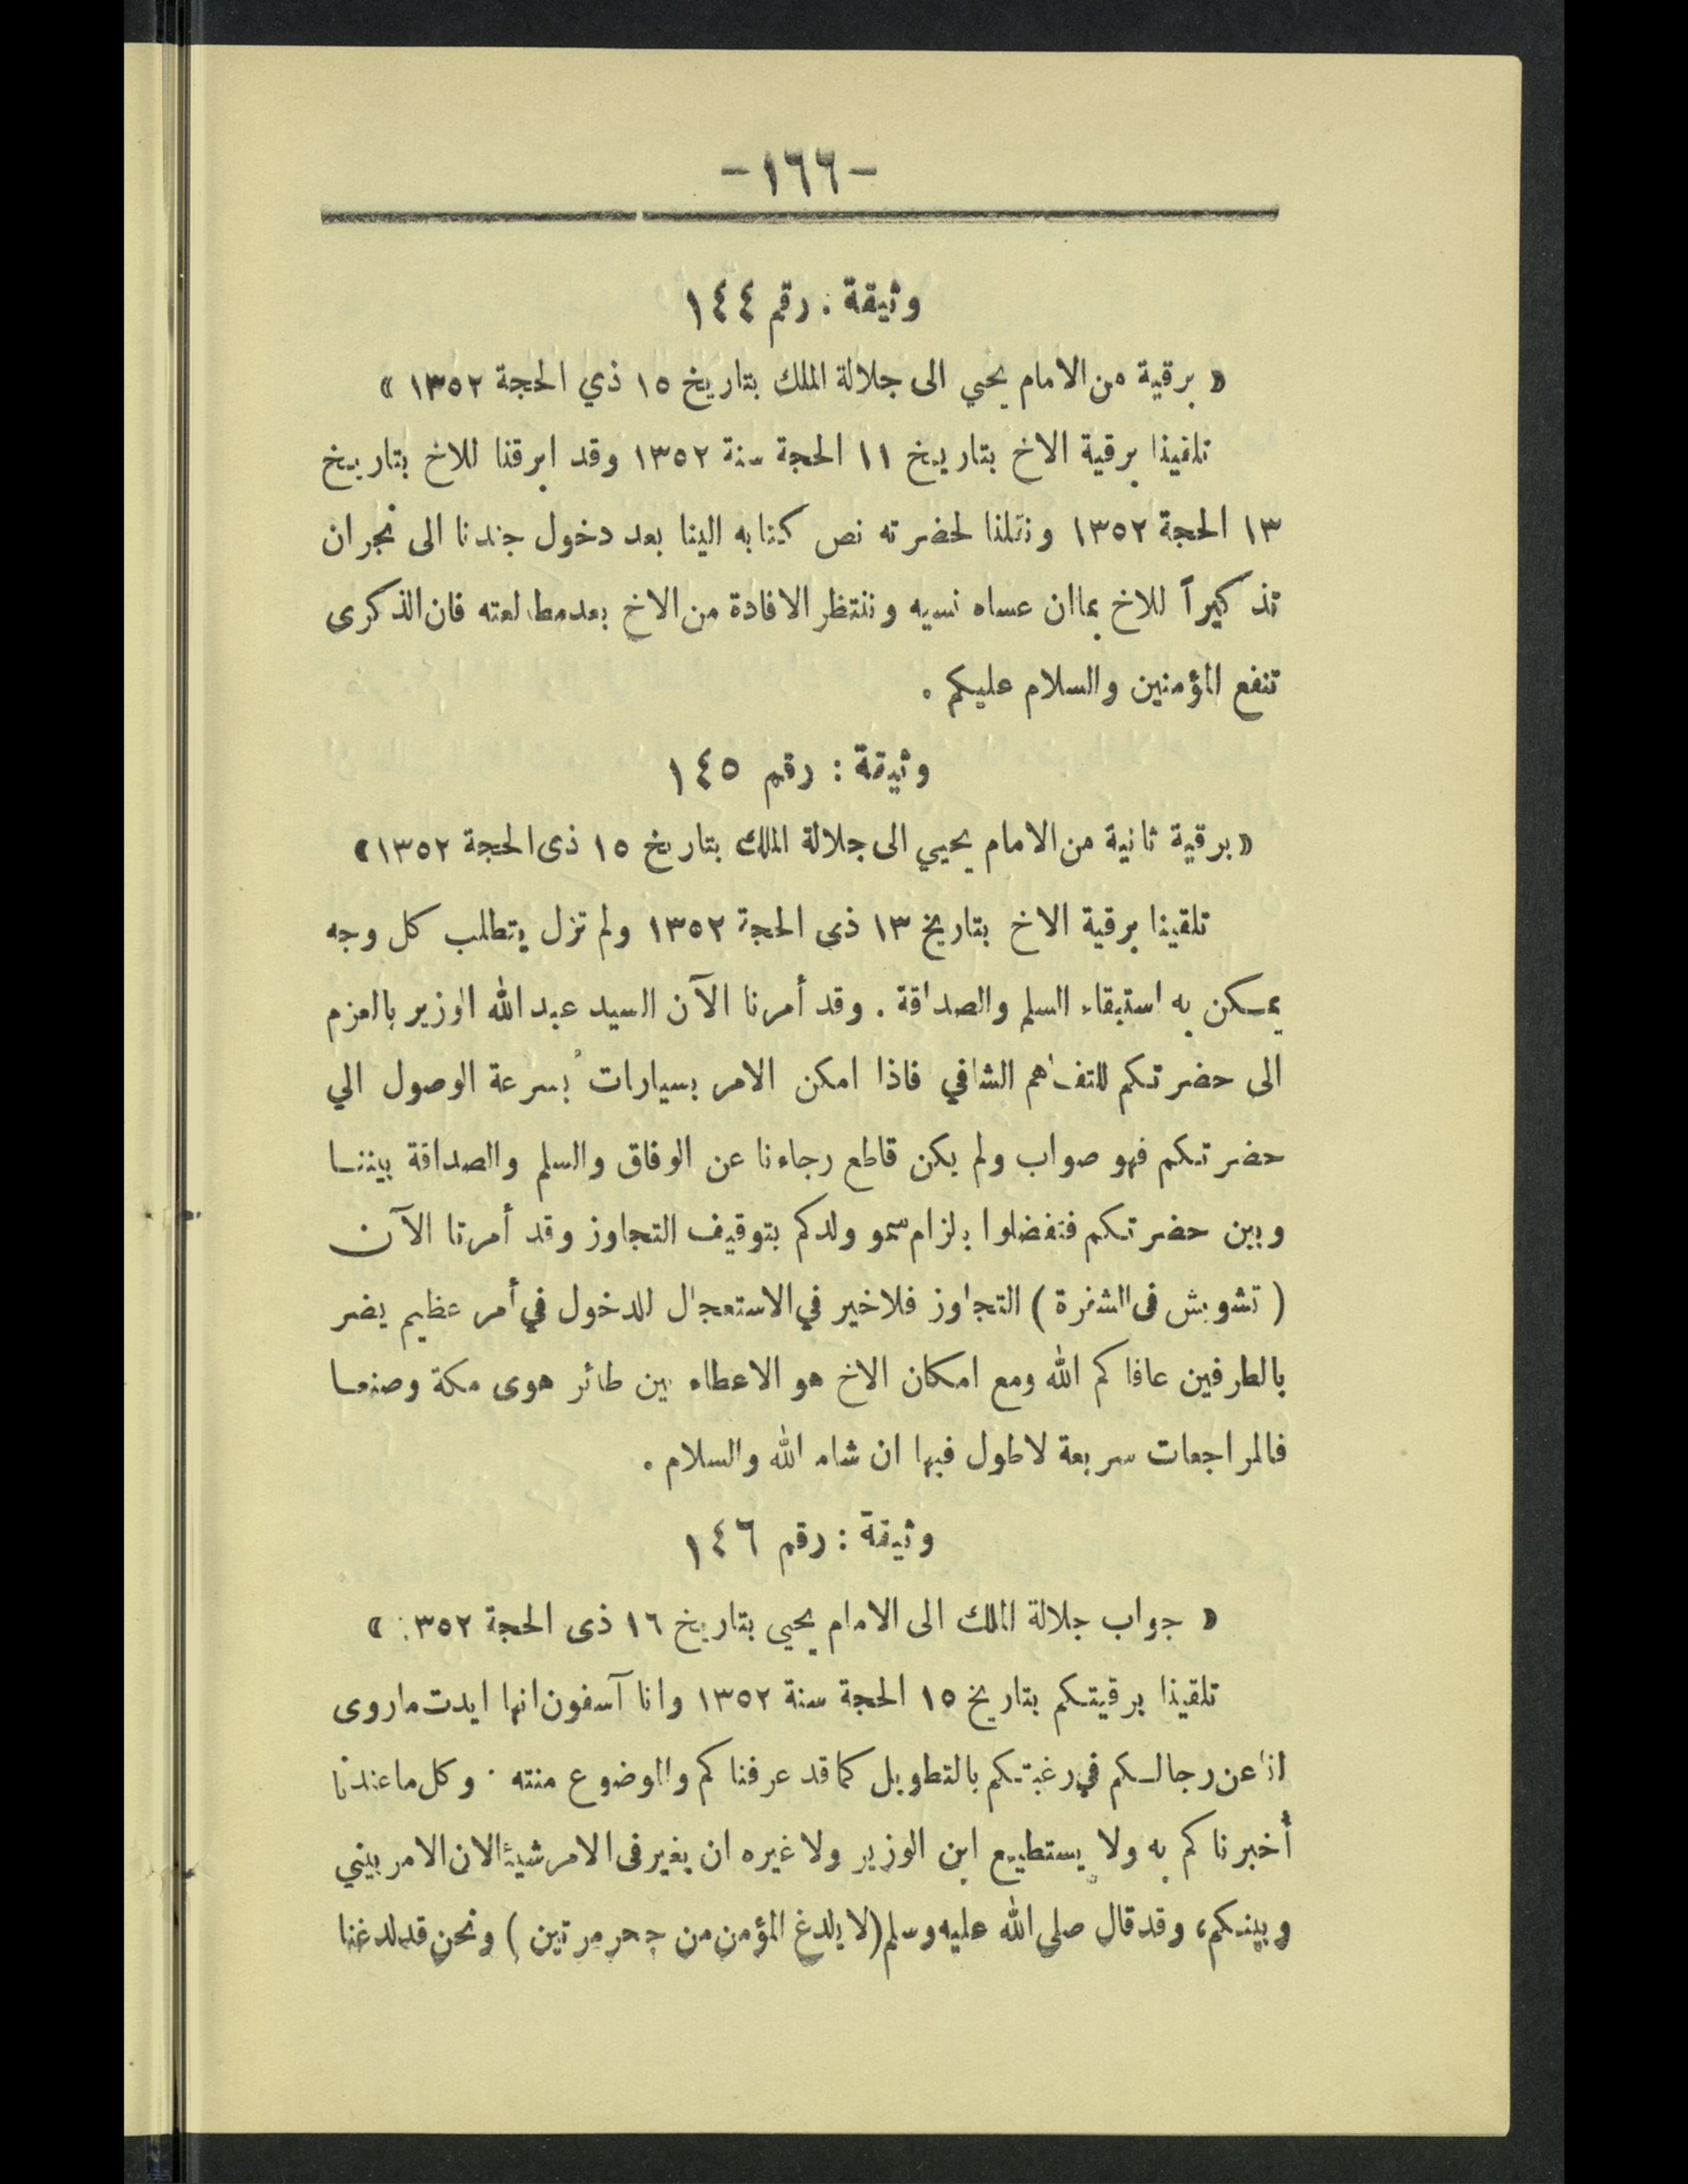 -١٦٦-
وثيقة : رقم ١٤٤
« برقية من الامام يحيي الى جلالة الملك بتاريخ ١٥ ذي الحجة ١٣٥٢ »
تلقينا برقية الاخ بتاريخ ١١ الحجة سنة ١٣٥٢ وقد ابرقنا للاخ بتاريخ
١٣ الحجة ١٣٥٢ ونقلنا لحضرته نص كتابه الينا بعد دخول جندنا الى نجران
تذكيراً للاخ بما ان عساه نسيه وننتظر الافادة من الاخ بعد مطالعته فان الذكرى
تنفع المؤمنين والسلام عليكم .
وثيقة : رقم ١٤٥
« برقية ثانية من الامام يحيي الى جلالة الملك بتاريخ ١٥ ذى الحجة ١٣٥٢ »
تلقينا برقية الاخ بتاريخ ١٣ ذى الحجة ١٣٥٢ ولم تزل يتطلب كل وجه
يمكن به استبقاء السلم والصداقة . وقد أمرنا الآن السيد عبد الله الوزير بالعزم
الى حضرتكم للتفاهم الشافي فاذا امكن الامر بسيارات بسرعة الوصول الي
حضرتكم فهو صواب ولم يكن قاطع رجاءنا عن الوفاق والسلم والصداقة بيننا
وبين حضرتكم فتفضلوا بلزام سمو ولدكم بتوقيف التجاوز وقد أمرتا الآن
( تشويش فى الشفرة ) التجاوز فلاخير في الاستعجال للدخول في أمر عظيم يضر
بالطرفين عافاكم الله ومع امكان الاخ هو الاعطاء بين طائر هوى مكة وصنعا
فالمراجعات سريعة لاطول فيها ان شاء الله والسلام .
وثيقة : رقم ١٤٦
« جواب جلالة الملك الى الامام يحيي بتاريخ ١٦ ذى الحجة ١٣٥٢ »
تلقينا برقيتكم بتاريخ ١٥ الحجة سنة ١٣٥٢ وانا آسفون انها ايدت ماروى
لنا عن رجالكم في رغبتكم بالتطويل كما قد عرفناكم والوضوع منته . وكل ما عندنا
أخبرناكم به ولا يستطيع ابن الوزير ولا غيره ان يغير فى الامر شيئا لان الامر بيني
وبينكم، وقد قال صلى الله عليه وسلم (لا يلدغ المؤمن من جحر مرتين) ونحن قد لدغنا